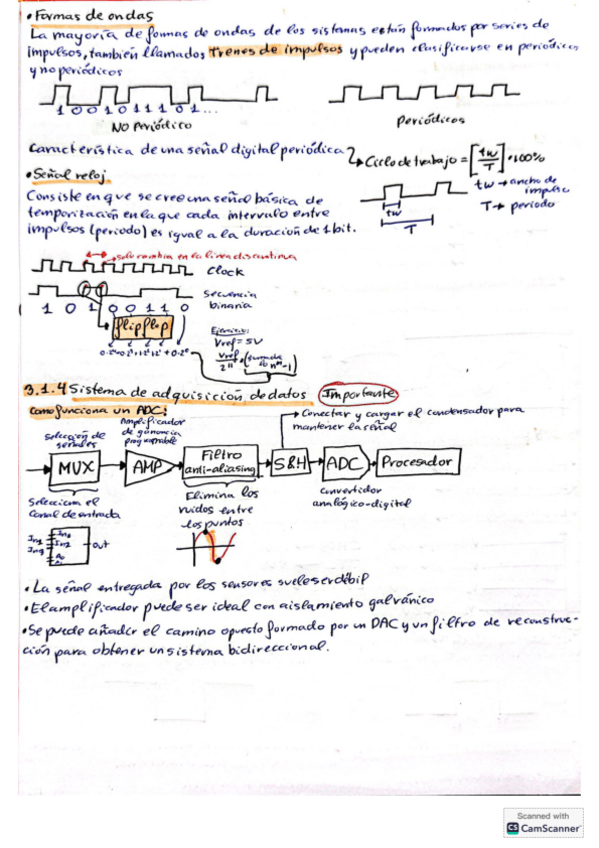 • Formas de ondas
La mayoría de formas de ondas de los sistemas están formados por series de
impulsos, también llamados trenes de impulsos y pueden clasificarse en periódicos
y no periódicos
1 0 0 1 0 1 1 1 0 1 ...
NO Periódico
Periódicos
Característica de una señal digital periódica? Ciclo de trabajo = [tw/T] • 100%
• Señal reloj
Consiste en que se cree una señal básica de
temporización en la que cada intervalo entre
impulsos (periodo) es igual a la duración de 1 bit.
tw → ancho de
impulso
T → periodo
tw
T
solo cambia en la línea discontinua
Clock
secuencia
binaria
1 0 1 0 0 1 1 0
flip flop
Ejercicio:
Vref = 5V
Vref
2ⁿ
3.1.4 Sistema de adquisición de datos Importante
Como funciona un ADC:
Amplificador
de ganancia
programable
→ Conectar y cargar el condensador para
mantener la señal
Selección de
señales
MUX
AMP
Filtro
anti-aliasing
S&H
ADC
Procesador
Selecciona el
Canal de entrada
Elimina los
ruidos entre
los puntos
convertidor
analógico-digital
out
• La señal entregada por los sensores suele ser débil
• El amplificador puede ser ideal con aislamiento galvánico
• Se puede añadir el camino opuesto formado por un DAC y un filtro de reconstruc-
ción para obtener un sistema bidireccional.
Scanned with
CS CamScanner